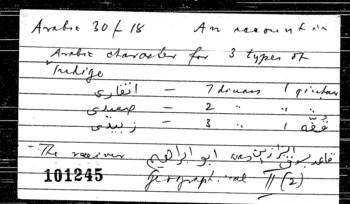 Arabic 30 f 18 An account in
Arabic character for 3 types of
Indigo
انقارى — 7 dinars 1 qintar
صعيدى — 2 " " "
زبيدى — 3 " 1 قفة
The receiver ابو ابراهيم was
101245 Geographical II (2)